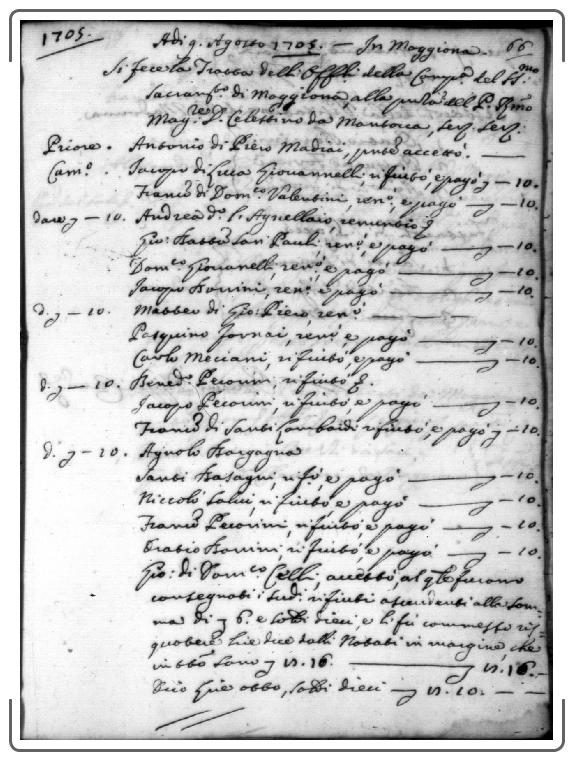 1705.
Adi 9. Agosto 1705. — In Maggiona. 66
Si fece la Tratta delli Offli della Compa del SSmo
Sacramto di Maggiona, alla pnza del P.
Magre P. Celestino da
Priore. Antonio di Piero pnte accettò. —
Camo. Jacopo di Luca Giovannelli, rifiutò, e pagò — 10.
Franco di Domco Valentini, renò, e pagò — 10.
dare — 10. Andrea renuntiò
Gio: Batta San Pauli renò, e pagò — 10.
Domco Giovanelli, renò, e pagò — 10.
Jacopo Bonini, renò, e pagò — 10.
d. — 10. Matteo di Gio: Piero, renò. —
Pasquino Fornai, renò, e pagò — 10.
Carlo Meciani, rifiutò, e pagò — 10.
d. — 10. Benedo Pecorini, rifiutò
Jacopo Pecorini, rifiutò, e pagò — 10.
Franco di Santi Lombardi rifiutò, e pagò — 10.
d. — 10. Agnolo Bargagna
Santi Batagni, rifò, e pagò — 10.
Niccolò Salvi, rifiutò, e pagò — 10.
Franco Pecorini, rifiutò, e pagò — 10.
Oratio Bonini, rifiutò, e pagò — 10.
Gio: di Domco Celli, accettò, al qle furono
consegnati i sudi rifiuti ascendenti alla som-
ma di 6. e soldi dieci, e li fu commesso ris-
quotere lire due dalli Notati in margine, che
in tto sono 16. — 16. —
Dico lire otto, soldi dieci — 10. —